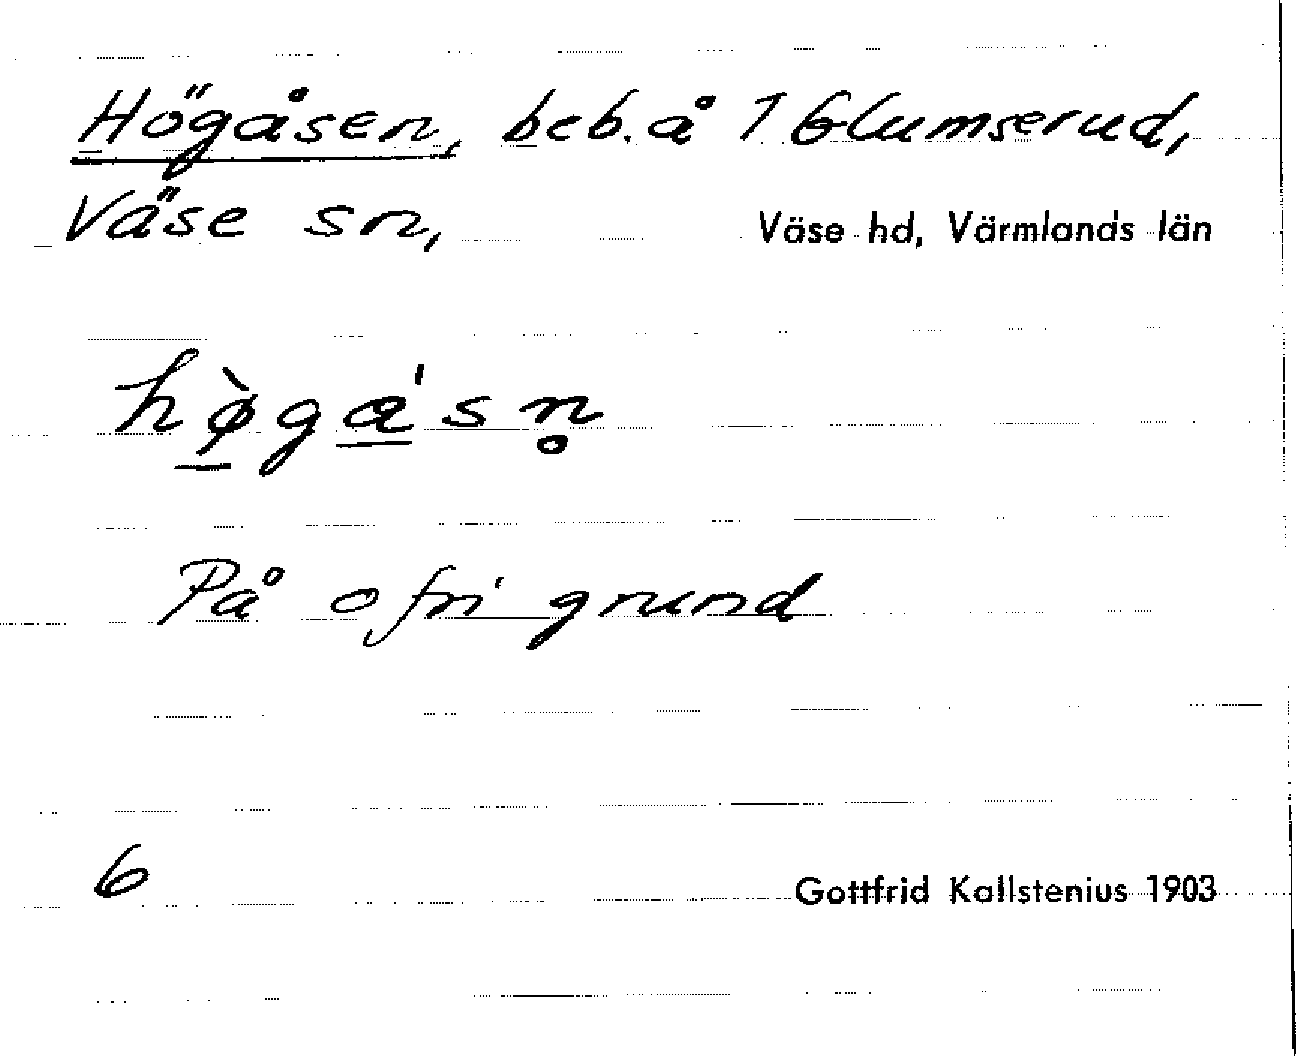 Högåsen, beb. å 1 Glumserud,
Väse sn, Väse hd, Värmlands län
hø̀ga̍sn̥
På ofri grund
6 Gottfrid Kallstenius 1903